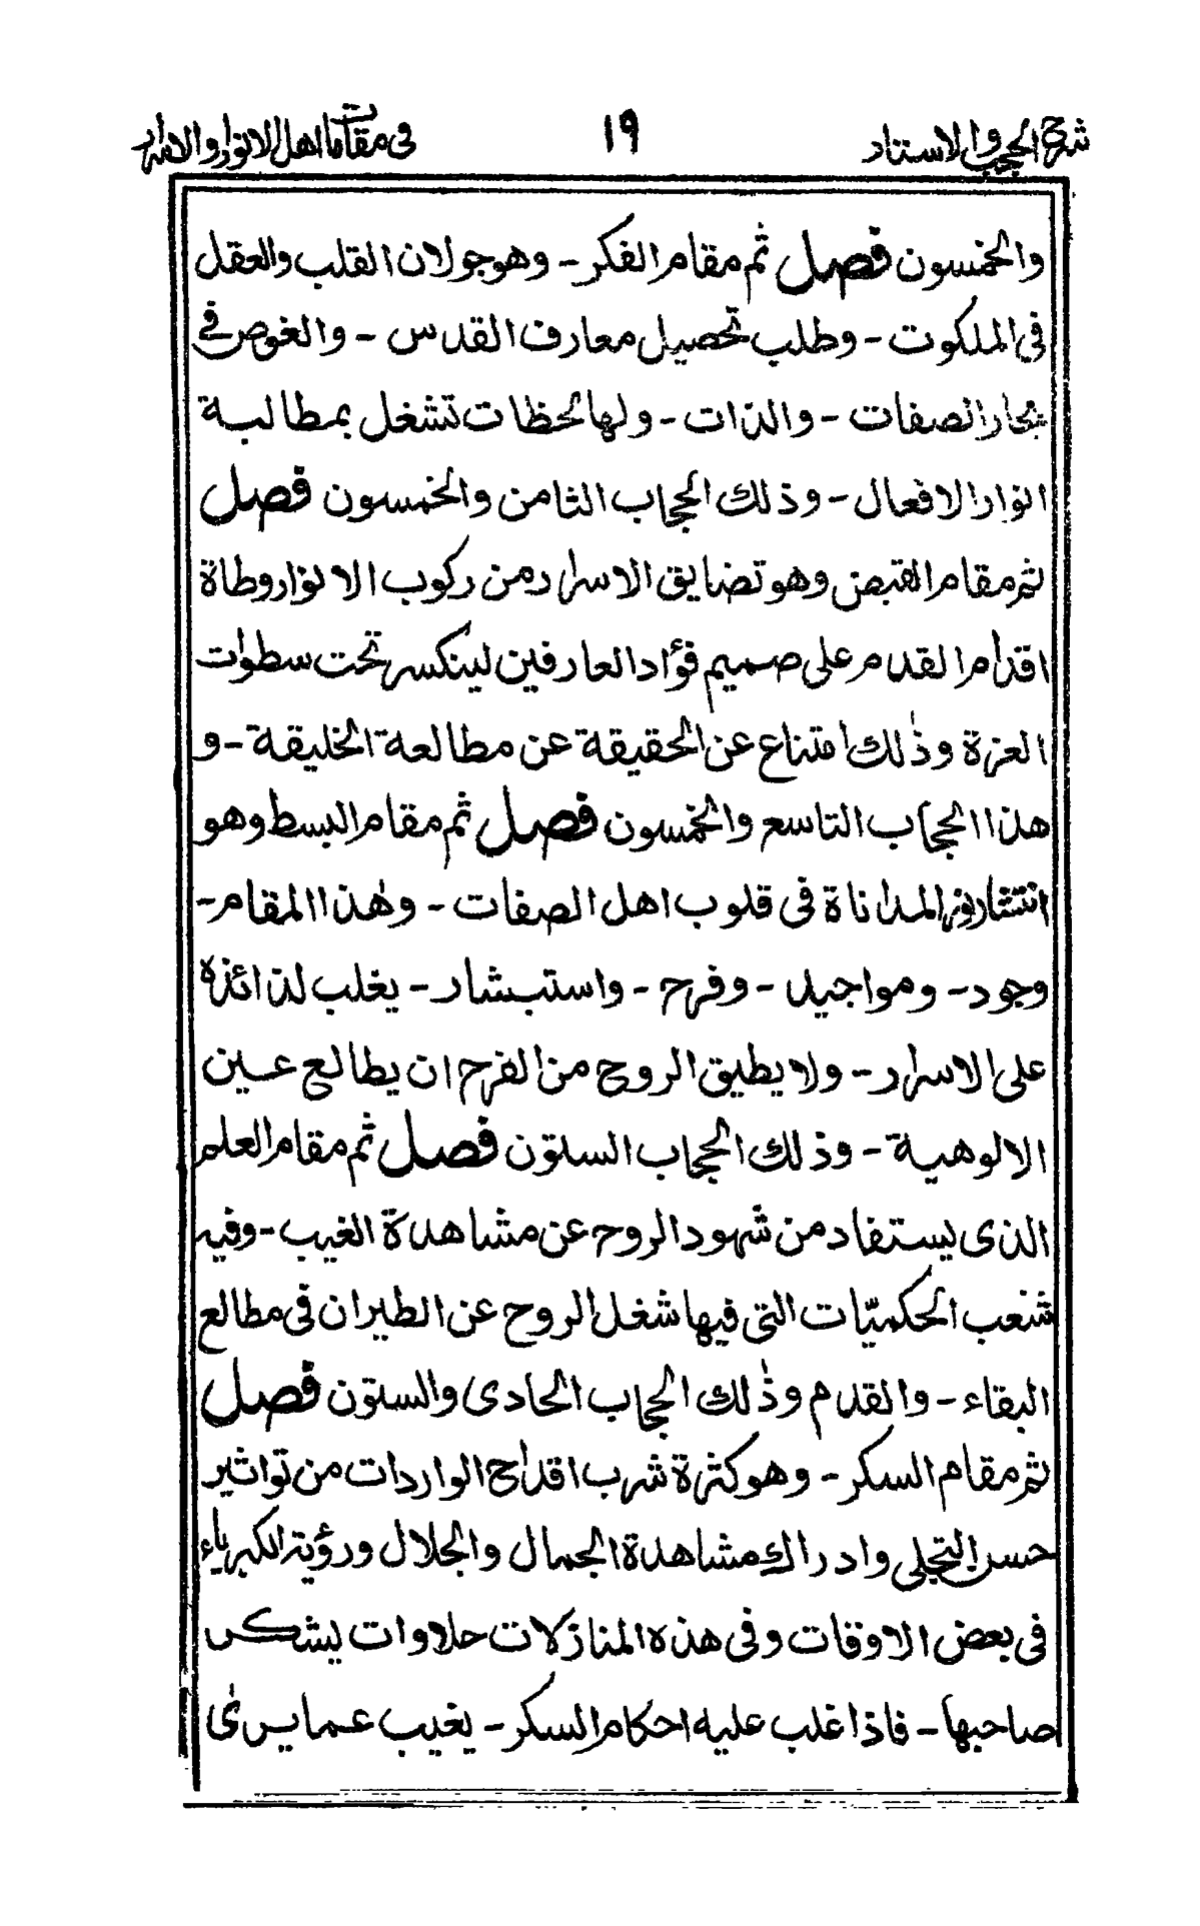 شرح الحجب والاستار
١٩
فى مقامات اهل الانوار والاسرار
والخمسون فصل ثم مقام الفكر - وهو جولان القلب والعقل
فى الملكوت - وطلب تحصيل معارف القدس - والغوص فے
بحار الصفات - والذات - ولها لحظات تشغل بمطالبة
انوار الافعال - وذلك الحجاب الثامن والخمسون فصل
ثم مقام القبض وهو تضايق الاسرار من ركوب الانوار وطاة
اقدام القدم على صميم فؤاد العارفين لينكسر تحت سطوات
العزة وذٰلك امتناع عن الحقيقة عن مطالعة الخليقة - و
هذا الحجاب التاسع والخمسون فصل ثم مقام البسط وهو
انتشار نور المداناة فى قلوب اهل الصفات - وهٰذا المقام -
وجود - ومواجيد - وفرح - واستبشار - يغلب لذائذه
على الاسرار - ولا يطيق الروح من الفرح ان يطالع عين
الالوهية - وذلك الحجاب الستون فصل ثم مقام العلم
الذى يستفاد من شهود الروح عن مشاهدة الغيب - وفيه
شعب الحكميّات التى فيها شغل الروح عن الطيران فى مطالع
البقاء - والقدم وذٰلك الحجاب الحادى والستون فصل
ثم مقام السكر - وهو كثرة شرب اقداح الواردات من تواثير
حسن التجلى وادراك مشاهدة الجمال والجلال ورؤية الكبرياء
فى بعض الاوقات وفى هذه المنازلات حلاوات ليشكر
صاحبها - فاذا غلب عليه احكام السكر - يغيب عما يرىٰ